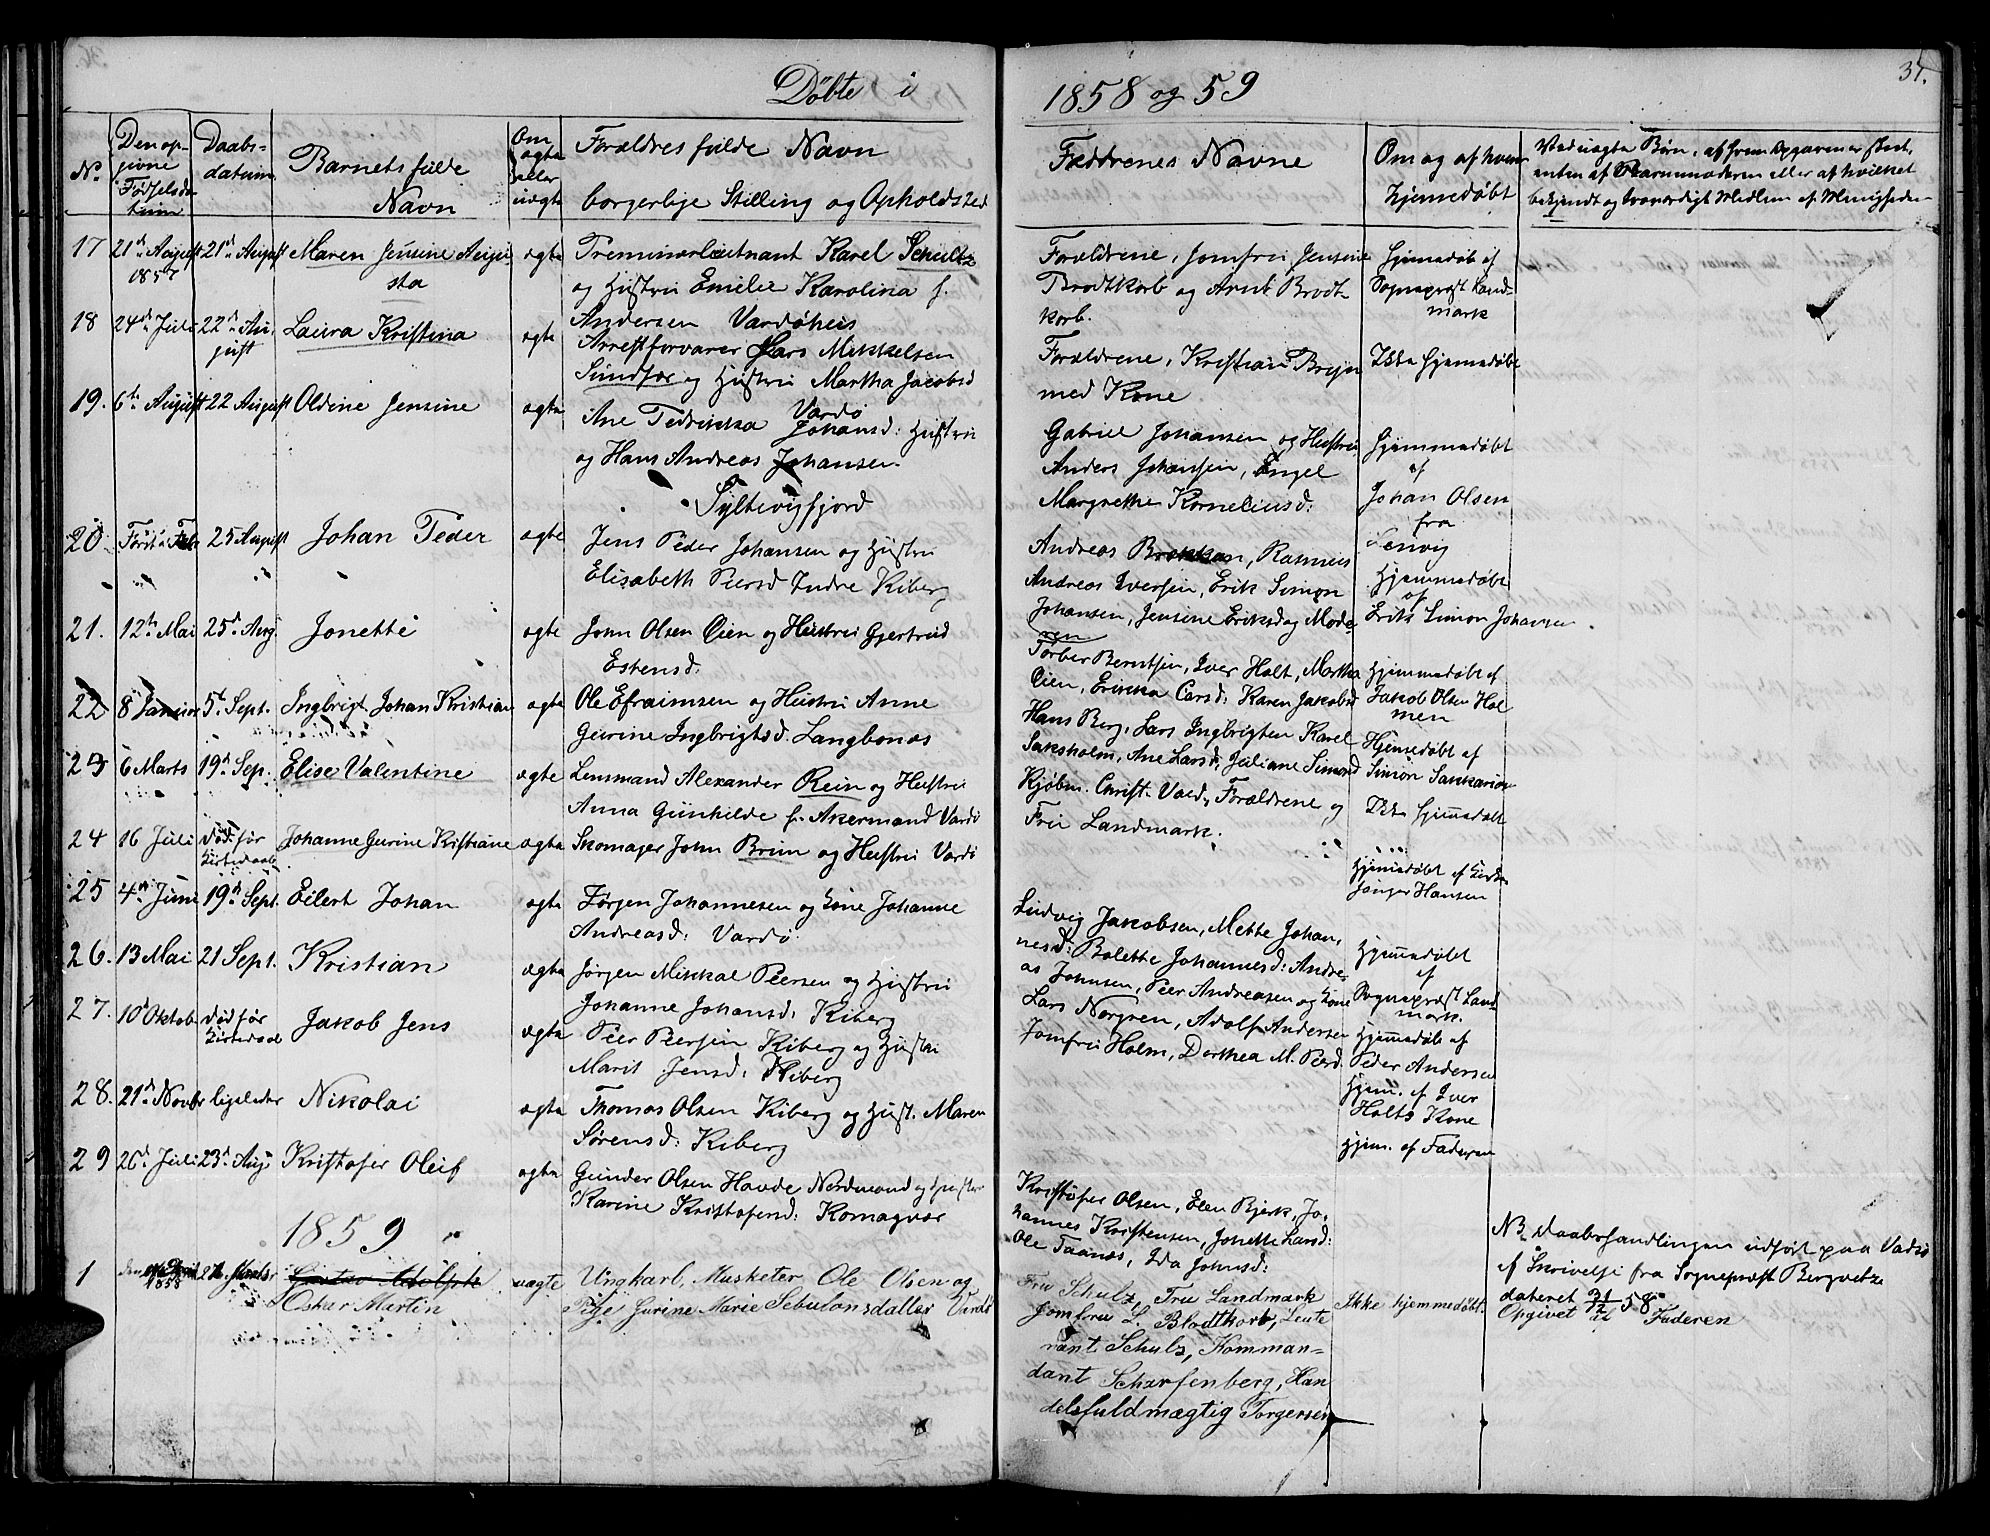 Døbte i
1858 og 59
37.
No
Den op-
givne
Fødselsda-
tum
Daabs-
datum
Barnets fulde
Navn
Om
ægte
eller
uægte
Forældres fulde Navn
borgerlige Stilling og Opholdsted
Faddrenes Navne
Om og af hvem
hjemedøbt
Ved uægte Børn, af hvem Opgaven er skeet,
enten af Barnmoderen eller af hvilket
bekjendt og troværdigt Medlem af Menigheden
17 21d August 1857 21d August Maren Jensine Augu-
sta
ægte Premierlieutnant Karel Schultz
og Hustru Emilie Karolina f.
Andersen Vardøhus
Forældrene, Jomfru Jensine
Brodtkorb og Arnt Brodt
korb.
Hjemedøb af
Sognepræst Land-
mark
18 24d Juli 22d Au-
gust
Laura Kristina
ægte Arrestforvarer Lars Mikkelsen
Sundfær og Hustru Martha Jacobsd
Vardø
Forældrene, Kristian Bryn
med Kone
Ikke hjemedøbt
19. 6te August 22 August Oldine Jensine
ægte Ane Fedrikka Johansd: Hustru
og Hans Andreas Johansen
Syltevigfjord
Gabriel Johansen og Hustru
Anders Johansen, Engel
Margrethe Korneliusd:
Hjemmedøbt
af
Johan Olsen
fra
Lenvig
20 25 August Johan Peder
ægte Jens Peder Johansen og Hustru
Elisabeth Piersd Indre Kiberg
Andreas Brokkan, Rasmus
Andreas Iversen, Erik Simon
Johansen, Jensine Eriksd og Mode-
ren
Hjemmedøbt
af
Erik Simon Johansen
21. 12te Mai 25d Aug. Jonette
ægte John Olsen Oien og Hustru Gjertrud
Estensd:
Torber Berntsen, Iver Holt, Martha
Oien, Erikka Carsd: Karen Jakobsd
Hjemmedøbt af
Jakob Olsen Hol-
men
22 8 Januar 5te Sept. Ingbrigt Johan Kristian
ægte Ole Efraimsen og Hustru Anne
Gurine Ingbrigtsd. Langbonæs
Hans Berg, Lars Ingbrigten Karel
Saksholm, Ane Larsd, Juliane Simonsd
Hjemedøbt af
Simon Sankarias
23 6 Marts 19d Sep. Elise Valentine
ægte Lensmand Alexander Rein og Hustru
Anna Gunhilde f. Akermand Vardø
Kjøbm. Christ. Vaed, Forældrene og
Fru Landmark.
Ikke hjemedøbt
24 16 Juli død før
Kirkedaab
Johanne Gurine Kristiane
ægte Skomager John Brun og Hustru Vardø
Hjemedøbt af Kirke-
sanger Hansen
25 4de Juni 19d Sept. Eilert Johan
ægte Jørgen Johannesen og Kone Johanne
Andreasd: Vardø
Ludvig Jakobsen, Mette Johan-
nesd: Bolette Johannesd: Andre-
as Johnsen, Peer Andreasen og Kone
Hjemedøbt
af
Sognepræst Land-
mark.
26. 13 Mai 21 Sept. Kristian
ægte Jørgen Mikkal Peersen og Hustru
Johanne Johansd: Kiberg
Lars Norgren, Adolf Andersen
Jomfru Holm, Dorthea M. Persd.
Hjemedøb af
Peder Andersen
27. 10d Oktob død før
Kirkedaab
Jakob Jens
ægte Peer Peersen Kiberg og Hustru
Marit Jensd: Kiberg
Hjem. af Iver
Holts Kone
28. 21d Novbr ligeleder Nikolai
ægte Thomas Olsen Kiberg og Hust. Maren
Sørensd: Kiberg
Hjem. af Faderen
29 20d Juli 23d Aug Kristofer Oluf
ægte Gunder Olsen Havde Nordmand og Hustru
Karine Kristofersd: Komagvær
Kristofer Olsen, Elen Bjerk, Jo-
hannes Kristensen, Jonette Larsd:
Ole Taanæs, Ida Johnsd:
1859
1 1858 Gustav Adolph
Oskar Martin
uægte Ungkarl, Musketer Ole Olsen og
Pige Gurine Marie Sebulonsdatter Vardø
Fru Schulz, Fru Landmark
Jomfru L. Brodtkorb, Leute
nant Schulz, Komman-
dant Scharfenberg, Han
delsfuldmægtig Torgersen
Ikke hjemmedøbt.
NB Daabshandlingen udført paa Vadsø
af Skrivelse fra Sognepræst Bergvitz
dateret 31/12 58
Opgivet af Faderen